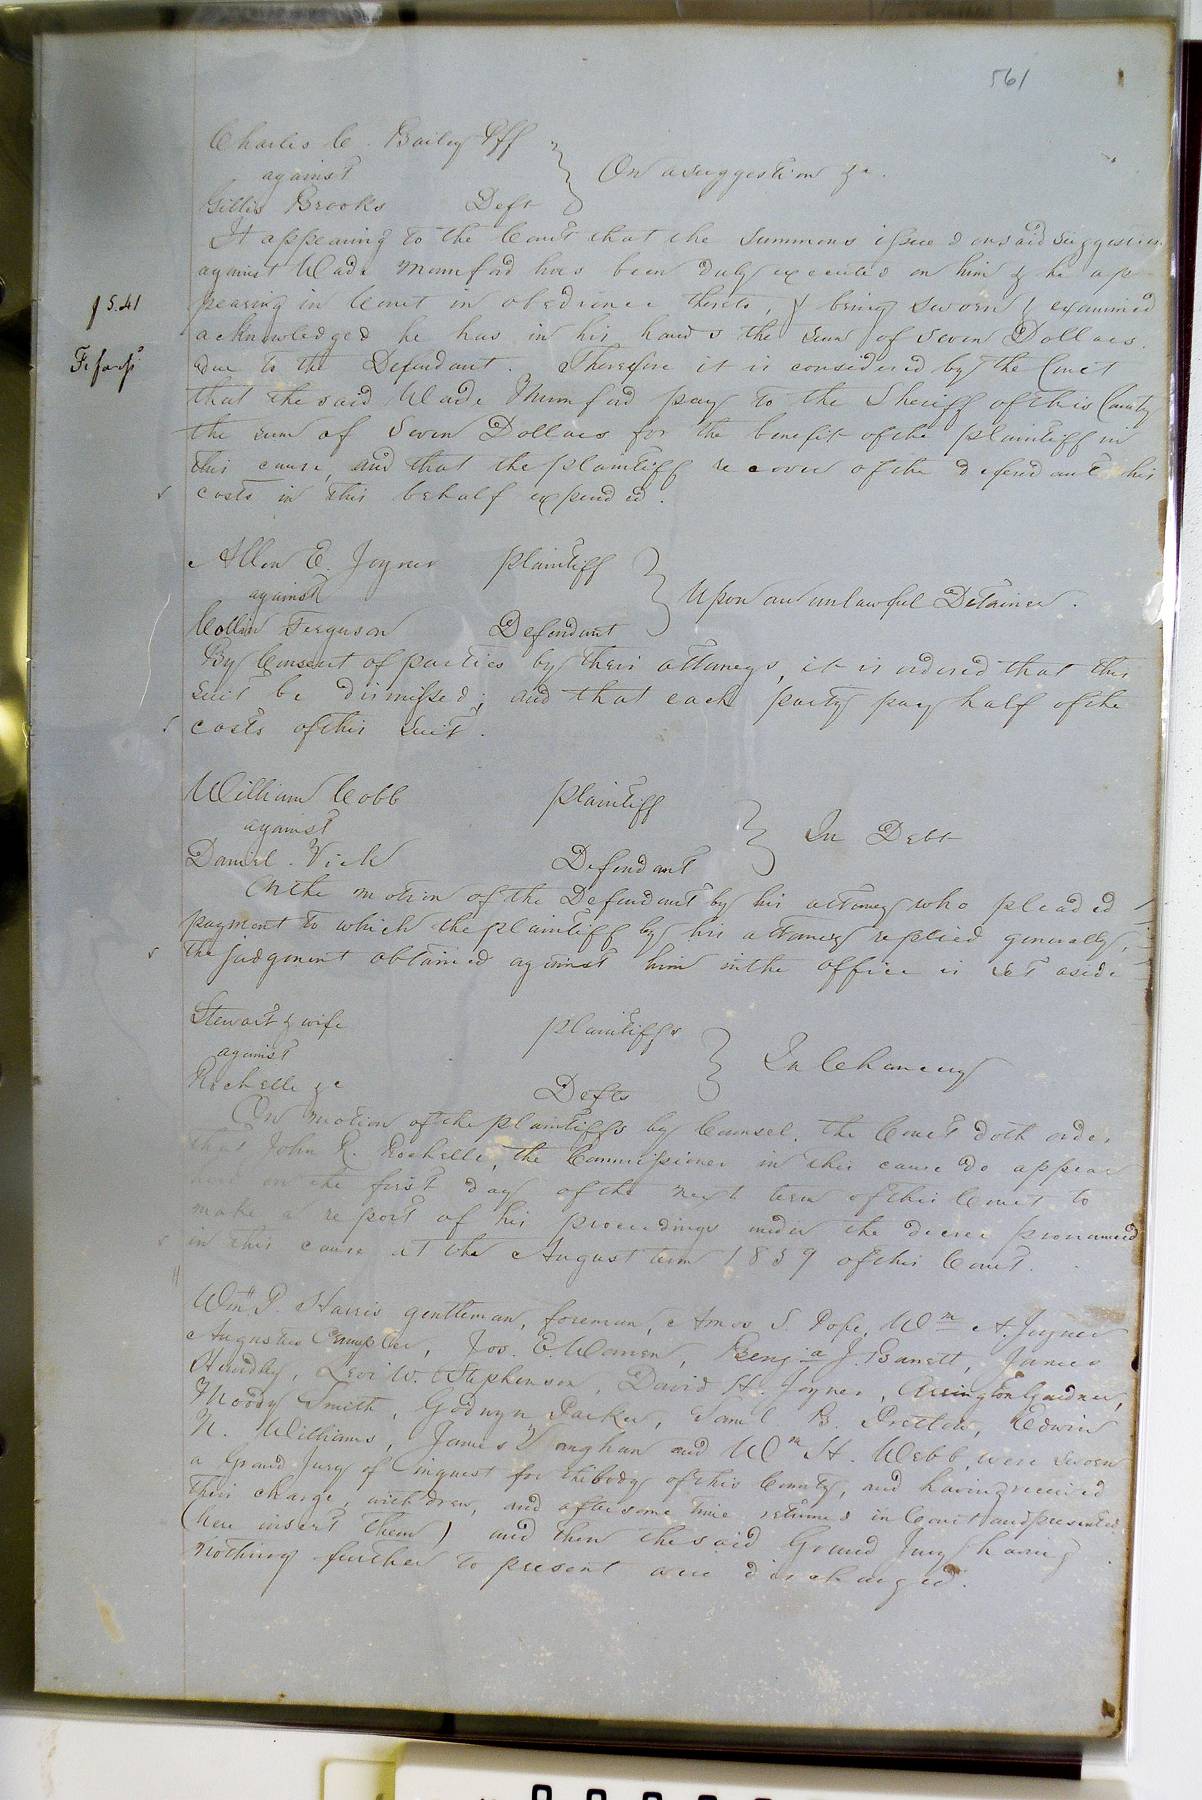 561
Charles C. Bailey Plff
against } On a suggestion &c.
Gillis Brooks Deft
It appearing to the Court that the summons issued on said suggestion
against Wade Mumford has been duly executed on him & he ap
pearing in Court in obedience thereto, & being sworn & examined
$5.41
acknowledged he has in his hands the sum of seven Dollars
due to the Defendant. Therefore it is considered by the Court
Fi fa
that the said Wade Mumford pay to the Sheriff of this County
the sum of Seven Dollars for the benefit of the plaintiff in
this cause, and that the plaintiff recover of the defendant his
costs in this behalf expended.
Allen E. Joyner plaintiff
against } Upon an unlawful Detainer.
Collin Ferguson Defendant
By Consent of parties by their attorneys, it is ordered that this
suit be dismissed; and that each party pay half of the
costs of this suit.
William Cobb plaintiff
against } In Debt
Daniel Vick Defendant
On the motion of the Defendant by his attorney who pleaded
payment to which the plaintiff by his attorney replied generally,
the judgment obtained against him in the office is set aside
Stewart & wife plaintiffs
against } In Chancery
Rochelle &c Defts
On motion of the plaintiffs by Counsel, the Court doth order
that John R. Rochelle, the Commissioner in this cause do appear
here on the first day of the next term of this Court to
make a report of his proceedings under the decree pronounced
in this cause at the August term 1839 of this Court.
Wm P. Harris gentleman, foreman, Amos S. Pope, Wm A. Joyner
Augustus Crumpler, Jos. E. Warren, Benja J. Barrett, James
Handley, Levi W. Stephenson, David H. Joyner, Arrington Gardner,
Moody Smith, Godwyn Parker, Saml B. Pretlow, Edwin
N. Williams, James Vaughan and Wm H. Webb, were sworn
a Grand Jury of inquest for the body of this County, and having received
their charge, withdrew, and after some time returned in Court and presented
(here insert them) and then the said Grand Jury having
nothing further to present were discharged.